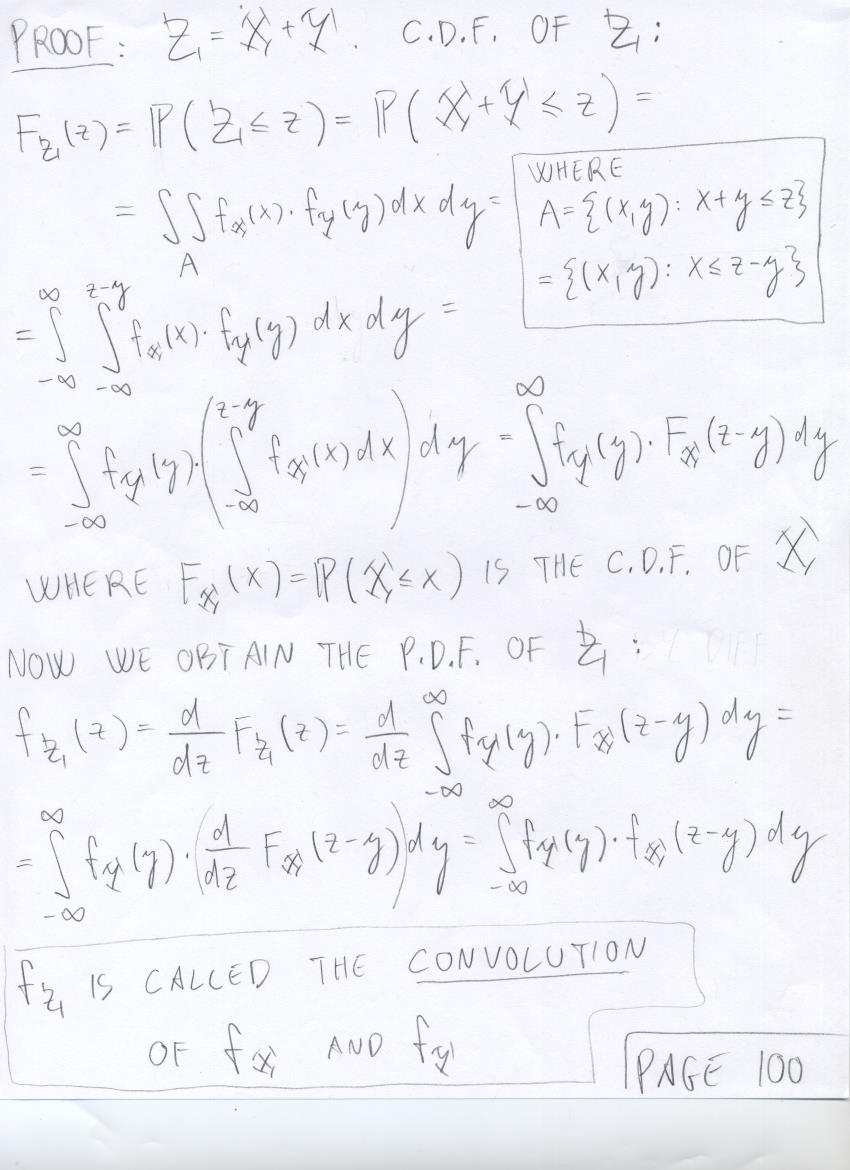 PROOF: Z = X + Y. C.D.F. OF Z:
F_Z(z) = ℙ(Z ≤ z) = ℙ(X + Y ≤ z) =
= ∬_A f_X(x) · f_Y(y) dx dy =
WHERE
A = {(x,y): x+y ≤ z}
= {(x,y): x ≤ z-y}
= ∫_{-∞}^{∞} ∫_{-∞}^{z-y} f_X(x) · f_Y(y) dx dy =
= ∫_{-∞}^{∞} f_Y(y) · (∫_{-∞}^{z-y} f_X(x) dx) dy = ∫_{-∞}^{∞} f_Y(y) · F_X(z-y) dy
WHERE F_X(x) = ℙ(X ≤ x) IS THE C.D.F. OF X
NOW WE OBTAIN THE P.D.F. OF Z:
f_Z(z) = d/dz F_Z(z) = d/dz ∫_{-∞}^{∞} f_Y(y) · F_X(z-y) dy =
= ∫_{-∞}^{∞} f_Y(y) · (d/dz F_X(z-y)) dy = ∫_{-∞}^{∞} f_Y(y) · f_X(z-y) dy
f_Z IS CALLED THE CONVOLUTION
OF f_X AND f_Y
PAGE 100